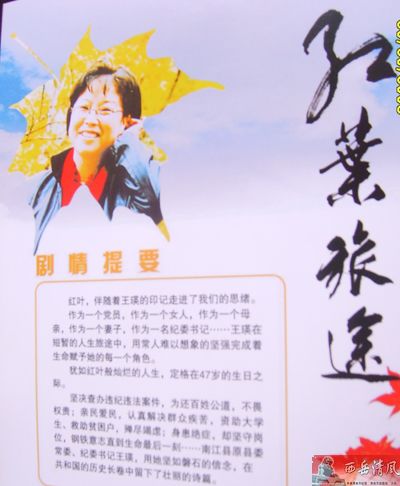 红葉旅途
剧情提要
红叶，伴随着王瑛的印记走进了我们的思绪。
作为一个党员，作为一个女人，作为一个母
亲，作为一个妻子，作为一名纪委书记……王瑛在
短暂的人生旅途中，用常人难以想象的坚强完成着
生命赋予她的每一个角色。
犹如红叶般灿烂的人生，定格在47岁的生日之
际。
坚决查办违纪违法案件，为还百姓公道，不畏
权贵；亲民爱民，认真解决群众疾苦，资助大学
生、救助贫困户，殚尽竭虑；身患绝症，却坚守岗
位，钢铁意志直到生命最后一刻……南江县原县委
常委、纪委书记王瑛，用她坚如磐石的信念，在
共和国的历史长卷中留下了壮丽的诗篇。
西岳清风